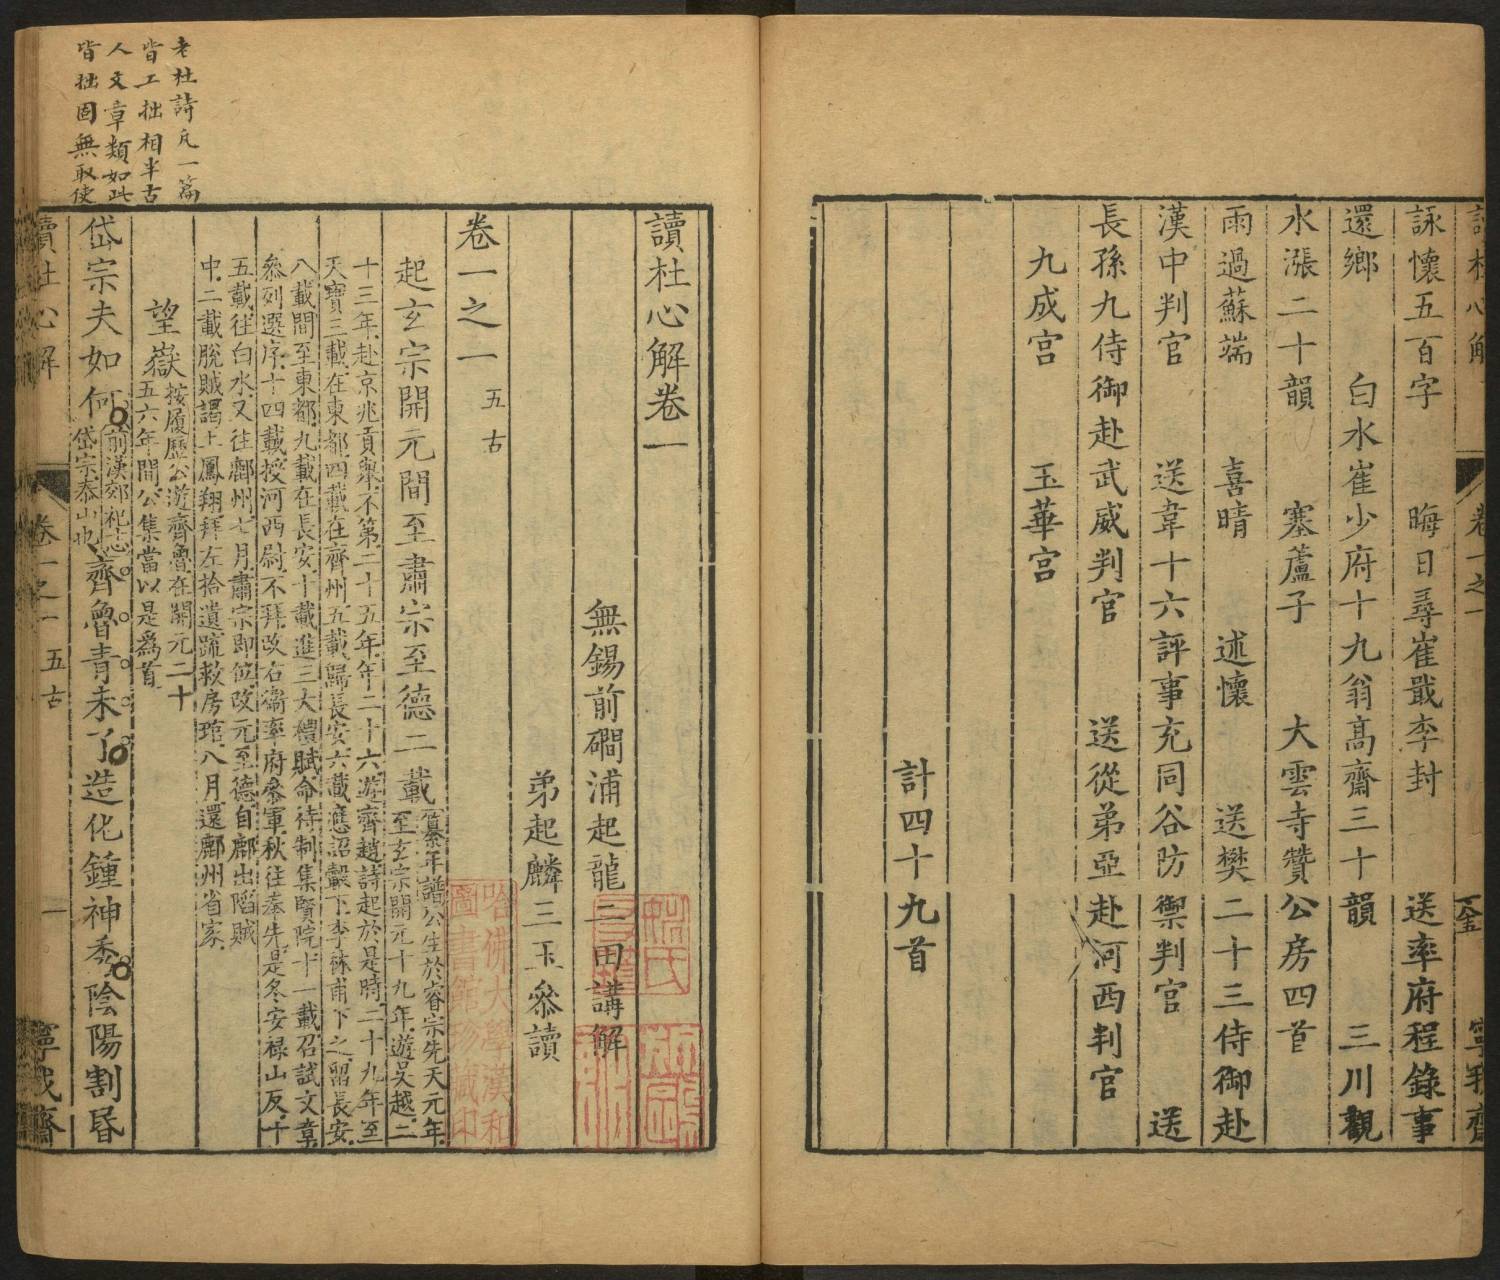 讀杜心解
卷一之一
寧我齋
詠懷五百字　晦日尋崔戢李封　送率府程錄事
還鄉　白水崔少府十九翁高齋三十韻　三川觀
水漲二十韻　塞蘆子　大雲寺贊公房四首
雨過蘇端　喜晴　述懷　送樊二十三侍御赴
漢中判官　送韋十六評事充同谷防禦判官　送
長孫九侍御赴武威判官　送從弟亞赴河西判官
九成宮　玉華宮
計四十九首
讀杜心解卷一
無錫前磵浦起龍二田講解
弟起麟三玉叅讀
卷一之一　五古
起玄宗開元間至肅宗至德二載
纂年譜公生於睿宗先天元年
至玄宗開元十九年遊吳越二
十三年赴京兆貢舉不第二十五年年二十六遊齊趙詩起於是時二十九年至
天寶三載在東都四載在齊州五載歸長安六載應詔轂下李林甫下之留長安
八載間至東都九載在長安十載進三大禮賦命待制集賢院十一載召試文章
叅列選序十四載授河西尉不拜改右衛率府叅軍秋往奉先是冬安祿山反十
五載往白水又往鄜州七月肅宗即位改元至德自鄜出陷賊
中二載脫賊謁上鳳翔拜左拾遺疏救房琯八月還鄜州省家
望嶽
按履歷公遊齊魯在開元二十
五六年間公集當以是為首
岱宗夫如何
前漢郊祀志
岱宗泰山也
齊魯青未了造化鍾神秀陰陽割昏
讀杜心解
卷一之一　五古
一
寧我齋
老杜詩凡一篇
皆工拙相半古
人文章類如此
皆拙固無取使
哈佛大學漢和
圖書館珍藏印